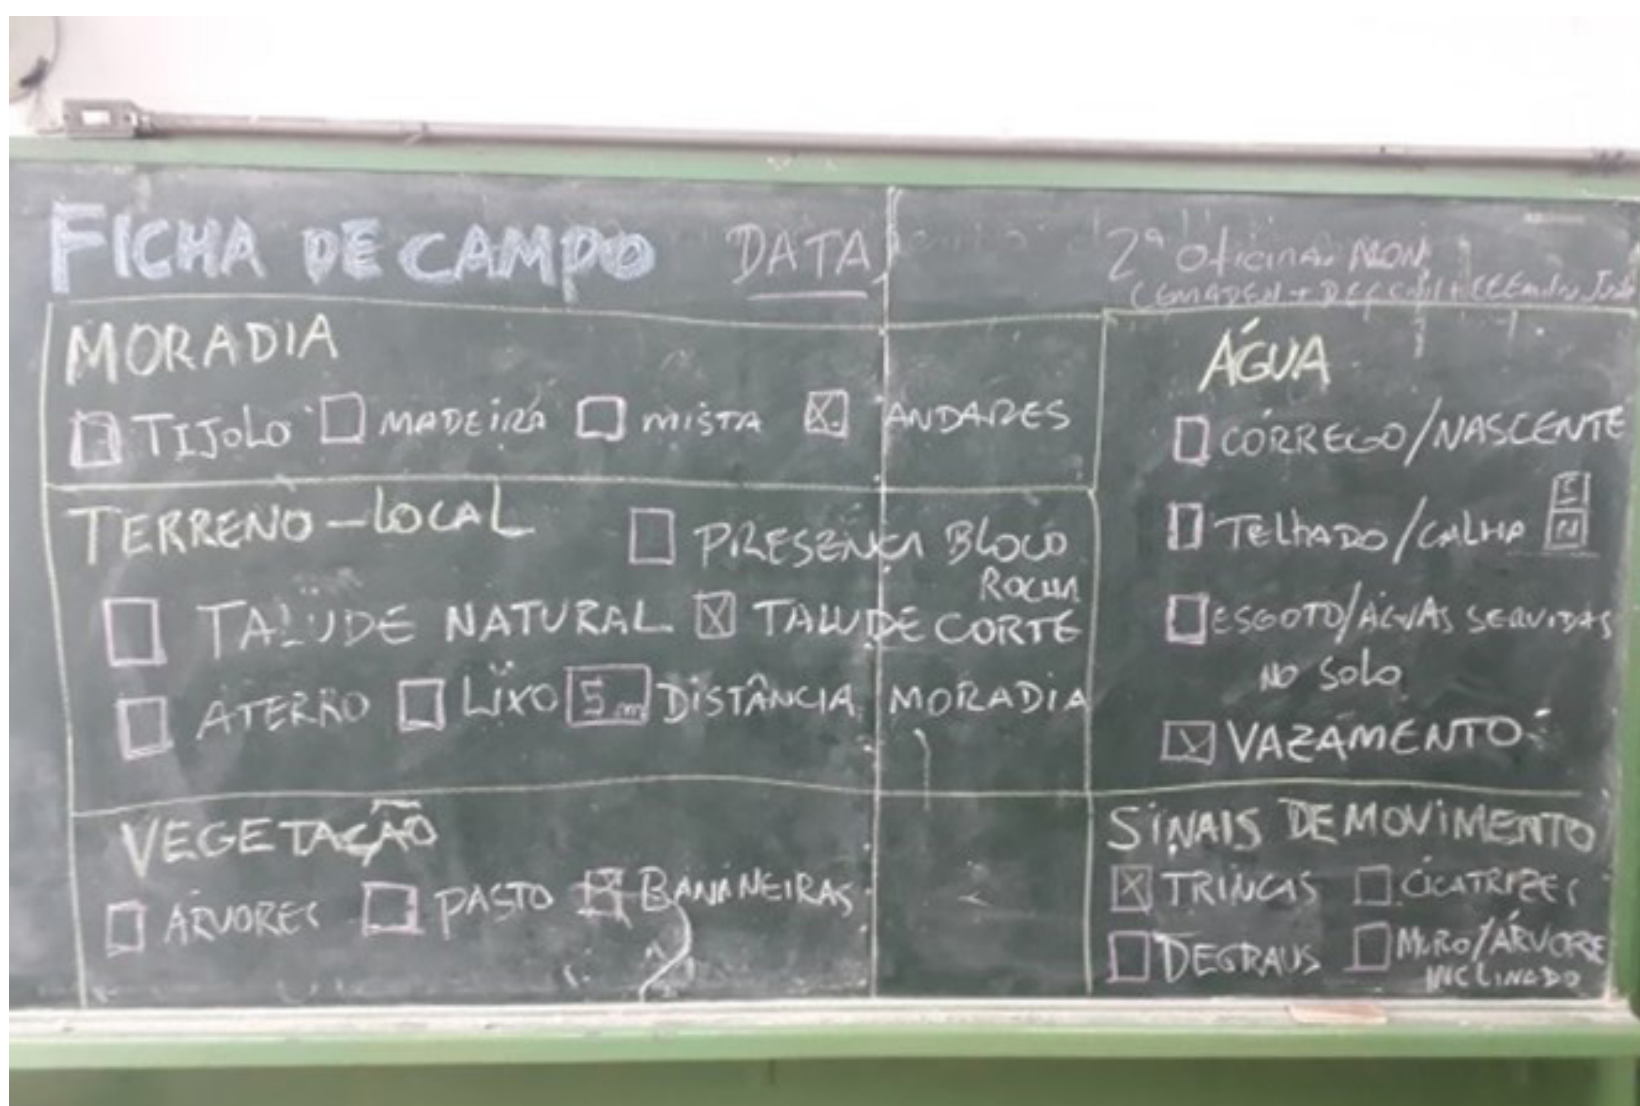 FICHA DE CAMPO DATA
2ª Oficina MON
CEMADEN + DEF CIVIL +
MORADIA
TIJOLO MADEIRA MISTA X ANDARES
TERRENO-LOCAL
PRESENÇA BLOCO
ROCHA
TALUDE NATURAL X TALUDE CORTE
ATERRO LIXO 5m DISTÂNCIA MORADIA
VEGETAÇÃO
ÁRVORES PASTO X BANANEIRAS
ÁGUA
CÓRREGO/NASCENTE
TELHADO/CALHA
ESGOTO/ÁGUAS SERVIDAS
NO SOLO
VAZAMENTO
SINAIS DE MOVIMENTO
X TRINCAS CICATRIZES
DEGRAUS MURO/ÁRVORE
INCLINADO